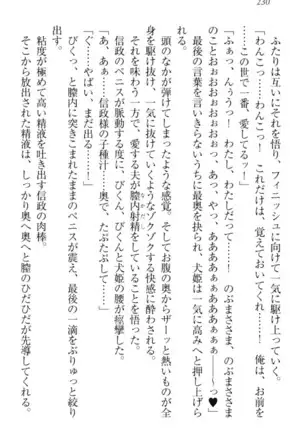 230
ふたりは互いにそれを悟り、フィニッシュに向けて一気に駆け上っていく。
「わんこっ……わんこっ！　これだけは、覚えておいてくれ……！　俺は、お前を
……この世で一番、愛してるっ！」
「ふぁっ、んぅうっ！　わたし、わたしだって……！　のぶまささま、のぶまささま
のことおぉおっ……ふぁっ、おっ、あっ、やっ、あぁああぁぁ……～っ♥」
　最後の言葉を言いきらないうちに最奥を抉られ、犬姫は一気に高みへと押し上げら
れる。
　頭のなかが弾けてしまったような感覚。そしてお腹の奥からザーッと熱いものが全
身を駆け抜け、突き抜けていくようなゾクゾクする快感に酔わされる。
　それを味わう一方で、愛する夫が膣内射精をしていることを悟った。
　信政のペニスが脈動する度に、びくんっ、びくんと犬姫の腰が痙攣した。
「あ、あぁ……信政様の子種汁……奥で、たぷたぷして……」
「ぐ……やばい、まだ出る……！」
　びくっ、と膣内に埋めこまれたままのペニスが震え、最後の一滴をぶりゅっと絞り
出す。
　粘度が極めて高い精液を吐き出す信政の肉棒。
　そこから放出された精液は、しっかり奥へ奥へと膣のひだひだが先導してくれる。